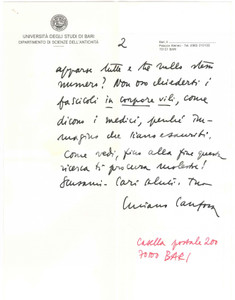 UNIVERSITÀ DEGLI STUDI DI BARI
DIPARTIMENTO DI SCIENZE DELL'ANTICHITÀ
2
70121 BARI
apparse tutte e tre sullo stesso
numero? Non oso chiederti i
fascicoli in corpore vili, come
dicono i medici, perché im-
magino che siano esauriti.
Come vedi, fino alla fine questa
ricerca ti procura molestie!
Scusami. Cari saluti. Tuo
Luciano Canfora
Casella postale 200
70100 BARI